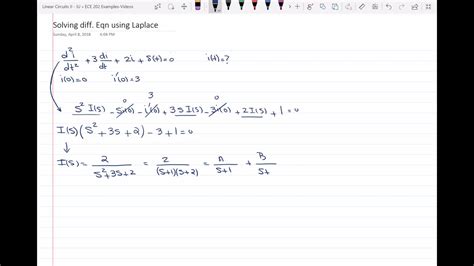 Linear Circuits II - SJ » ECE 202 Examples-Videos
Solving diff. Eqn using Laplace
Sunday, April 8, 2018 6:08 PM
d²i/dt² + 3 di/dt + 2i + δ(t) = 0 i(t) = ?
i(0) = 0 i'(0) = 3
0 3 0
S² I(S) - S i(0) - i'(0) + 3 S I(S) - 3 i(0) + 2 I(S) + 1 = 0
I(S) (S² + 3S + 2) - 3 + 1 = 0
I(S) = 2/(S² + 3S + 2) = 2/((S+1)(S+2)) = A/(S+1) + B/(S+